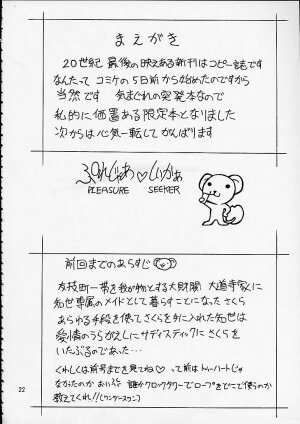 まえがき
20世紀 最後の映えある新刊はコピー誌です
なんたって コミケの5日前から始めたのですから
当然です 気まぐれの突発本なので
私的に価値ある限定本となりました
次からは心気一転して がんばります
ぷれじゃあ♡しいかあ
PLEASURE SEEKER
前回までのあらすじ
友枝町一帯を我が物とする大財閥 大道寺家に
知世専属のメイドとして暮らすことになった さくら
あらゆる手段を使ってさくらを手に入れた知世は
愛情のうらがえしにサディスティックにさくらを
いたぶるのであった…
くわしくは前号までを見てね♡ って前はトゥハートじゃ
なかったのか おいっ 誰かクロックタワーでロープをどこで使うのか
教えてくれ!!(ワンダースワン)
22